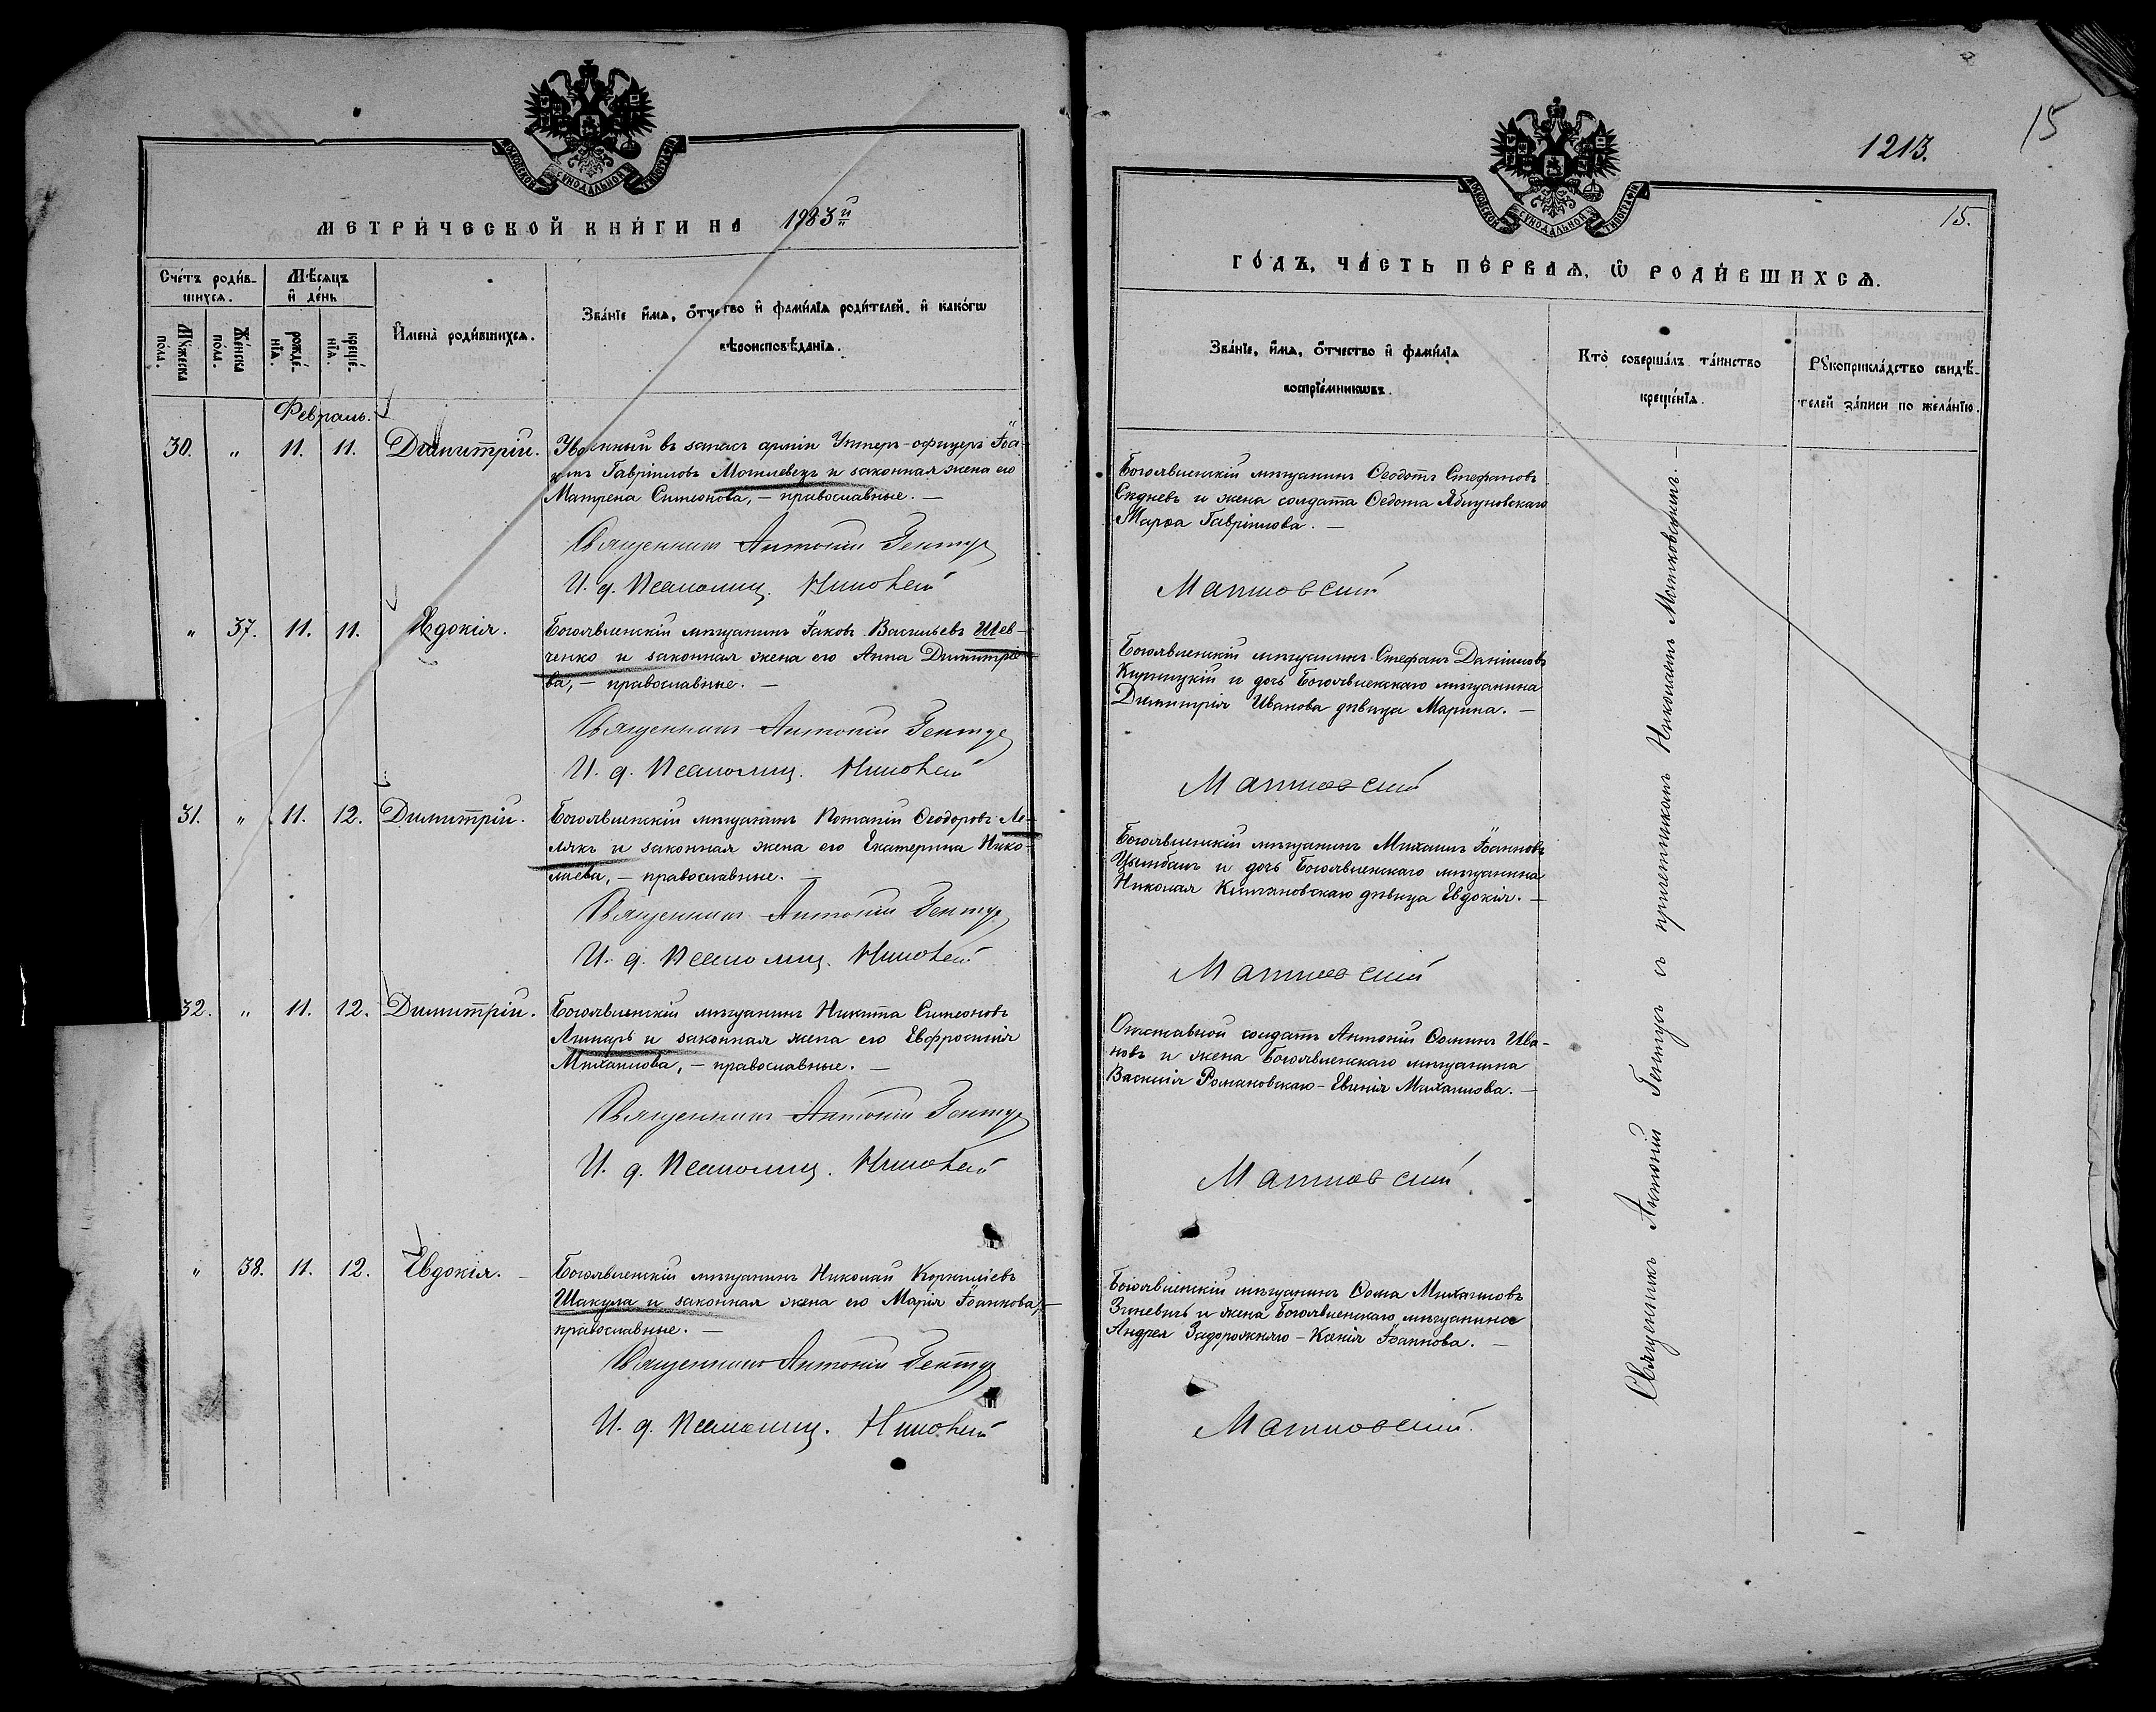 МОСКОВСКОЙ СѴНОДАЛЬНОЙ ТИПОГРАФІИ
МЕТРИ́ЧЕСКОЙ КНИ́ГИ НА 1883й
Счетъ роди́в-
шихся.
Мѣсяцъ
и҆ де́нь
Мꙋ́жеска по́ла.
Же́нска по́ла.
рожде́-
нїѧ.
креще́-
нїѧ.
И҆мена̀ роди́вшихсѧ.
Зва́нїе и҆́мѧ, ѻ҆́тчество и҆ фами́лїѧ роди́телей, и҆ какѡ́гѡ
вѣроисповѣ́данїѧ.
Февраль.
30. „ 11. 11. Димитрій. Уволенный въ запасъ арміи Унтеръ-офицеръ Іоа-
Гавріиловъ Могилевецъ и законная жена его
Матрена Симеонова, — православные. —
Священникъ Антоній Гентуе
И. д. Псаломщ. Ниловскій
„ 37. 11. 11. Евдокія. Богоявленскій мѣщанинъ Іаковъ Васильевъ Шев-
ченко и законная жена его Анна Димитріе-
ва, — православные. —
Священникъ Антоній Гентуе
И. д. Псаломщ. Ниловскій
31. „ 11. 12. Димитрій. Богоявленскій мѣщанинъ Потапій Ѳеодоровъ Ле-
лякъ и законная жена его Екатерина Нико-
лаева, — православные. —
Священникъ Антоній Гентуе
И. д. Псаломщ. Ниловскій
32. „ 11. 12. Димитрій. Богоявленскій мѣщанинъ Никита Симеоновъ
Лимарь и законная жена его Евфросинія
Михаилова, — православные. —
Священникъ Антоній Гентуе
И. д. Псаломщ. Ниловскій
„ 38. 11. 12. Евдокія. Богоявленскій мѣщанинъ Николай Корниліевъ
Шакула и законная жена его Марія Іоаннова, —
православные. —
Священникъ Антоній Гентуе
И. д. Псаломщ. Ниловскій
15
1213.
15.
МОСКОВСКОЙ СѴНОДАЛЬНОЙ ТИПОГРАФІИ
ГО́ДЪ, ЧА́СТЬ ПЕ́РВАѦ, Ѡ҆ РОДИ́ВШИХСѦ.
Зва́нїе, и҆́мѧ, ѻ҆́тчество и҆ фами́лїѧ
воспрїе́мникѡвъ.
Кто̀ соверша́лъ та́инство
креще́нїѧ.
Рꙋкоприкла́дство свидѣ́-
телей за́писи по жела́нїю.
Богоявленскій мѣщанинъ Ѳеодотъ Стефановъ
Сидневъ и жена солдата Ѳедота Яблуновскаго
Марѳа Гавріилова. —
Матковскій
Богоявленскій мѣщанинъ Стефанъ Даніиловъ
и дочь Богоявленскаго мѣщанина
Димитрія Иванова дѣвица Марина. —
Матковскій
Богоявленскій мѣщанинъ Михаилъ Іоанновъ
Цымбалъ и дочь Богоявленскаго мѣщанина
Николая дѣвица Евдокія. —
Матковскій
Отставной солдатъ Антоній Ѳоминъ Ива-
новъ и жена Богоявленскаго мѣщанина
Василія Романовскаго — Евгенія Михаилова. —
Матковскій
Богоявленскій мѣщанинъ Ѳома Михаиловъ
Зиневичъ и жена Богоявленскаго мѣщанина
Андрея Задорожняго — Ксенія Іоаннова. —
Матковскій.
Священникъ Антоній Гентуе съ причетникомъ Николаемъ Матковскимъ. —